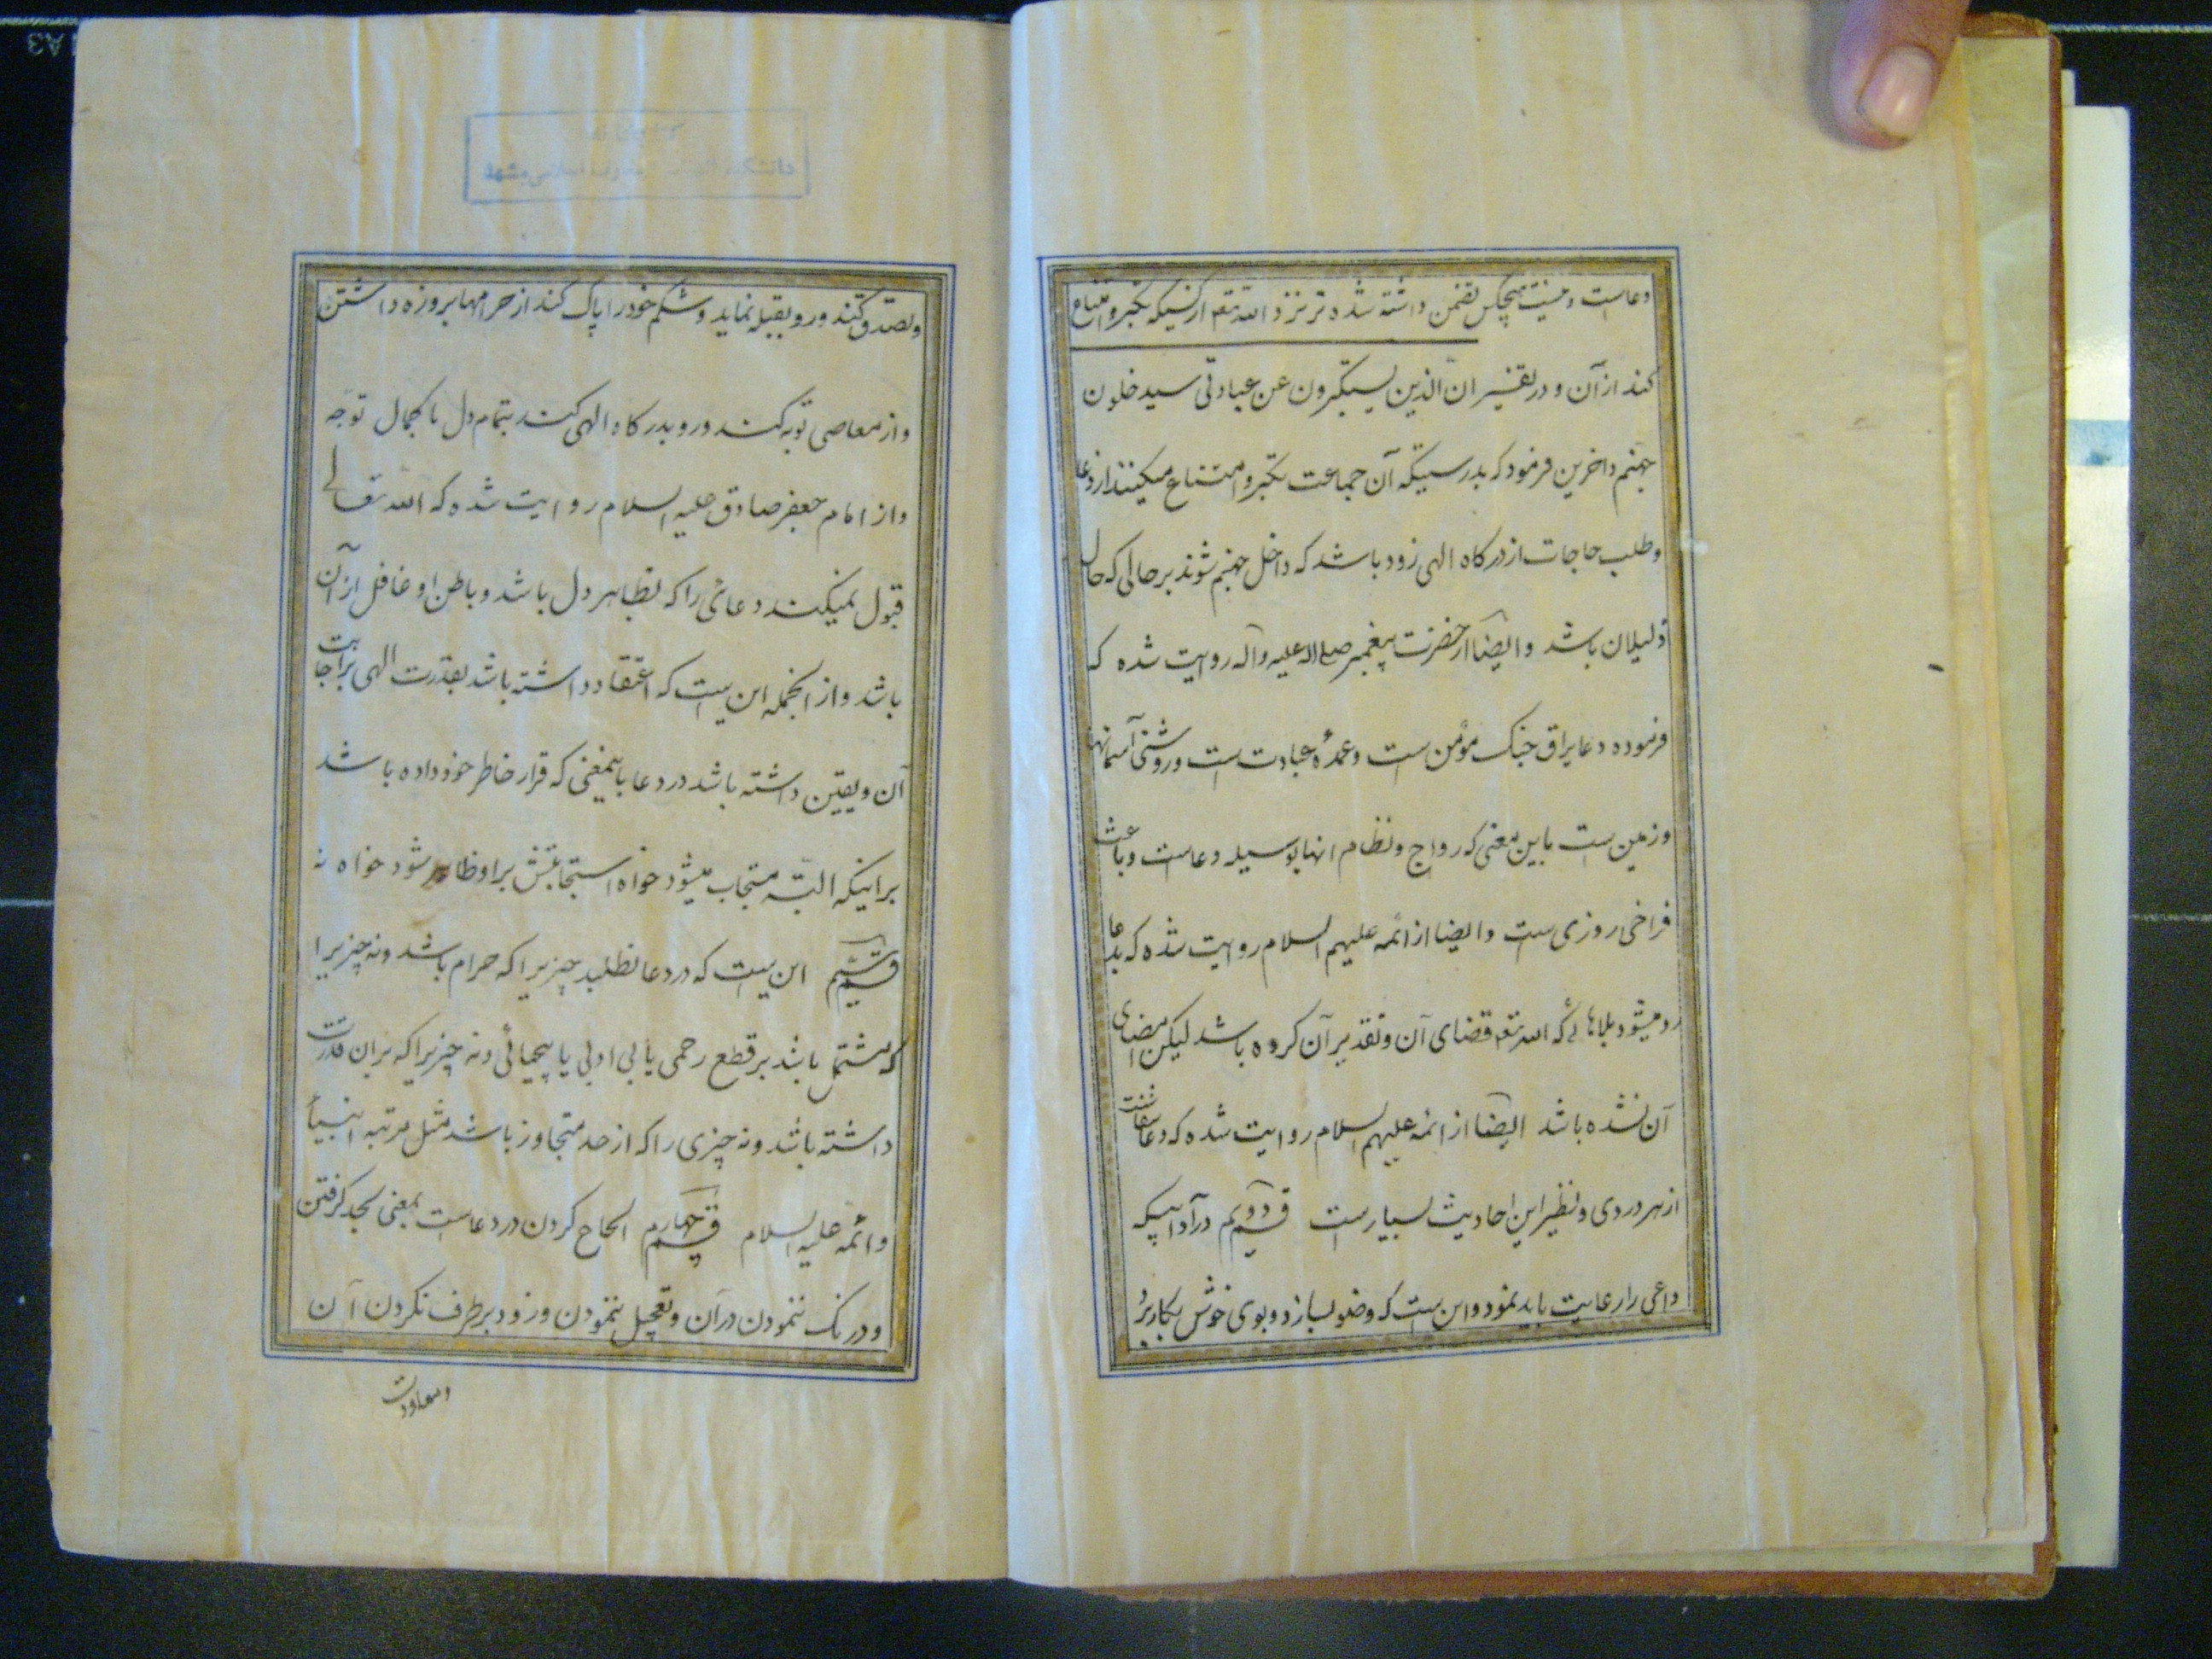 دعاست و نیست هیچکس داشته شده تر نزد الله تعم از کسیکه تکبر و امتناع
کند از آن و در تفسیر ان الذین یستکبرون عن عبادتی سیدخلون
جهنم داخرین فرمود که بدرستیکه آن جماعت تکبر و امتناع میکنند از دعا
و طلب حاجات از درکاه الهی زود باشد که داخل جهنم شوند بر حالی که حال
ذلیلان باشد و ایضا از حضرت پیغمبر صلی الله علیه و آله روایت شده که
فرموده دعا یراق جنک مؤمن است و عمدهٔ عبادت است و روشنی آسمانها
و زمین است باین معنی که رواج و نظام انها بوسیله دعاست و باعث
فراخی روزی است و ایضا از ائمه علیهم السلام روایت شده که بدعا
رد میشود بلاهائی که الله تعم قضای آن و تقدیر آن کرده باشد لیکن امضای
آن نشده باشد ایضا از ائمه علیهم السلام روایت شده که دعا شفاست
از هر دردی و نظیر این احادیث بسیار است قسم دویم در آدابیکه
داعی را رعایت باید نمود و این است که وضو بسازد و بوی خوش بکار برد
و تصدق کند و رو بقبله نماید و شکم خود را پاک کند از حرامها بروزه داشتن
و از معاصی توبه کند و رو بدرکاه الهی کند بتمام دل با کمال توجه
و از امام جعفر صادق علیه السلام روایت شده که الله تعالی
قبول نمیکند دعائی را که بظاهر دل باشد و باطن او غافل از آن
باشد و از انجمله این است که اعتقاد داشته باشد بقدرت الهی بر اجابت
آن و یقین داشته باشد در دعا باینمعنی که قرار خاطر خود داده باشد
بر اینکه البته مستجاب میشود خواه استجابتش بر او ظاهر شود خواه نه
قسم سیم این است که در دعا نطلبد چیزیرا که حرام باشد و نه چیزیرا
که مشتمل باشد بر قطع رحمی یا بی ادبی یا بیحیائی و نه چیزیرا که بر ان قدرت
داشته باشد و نه چیزی را که از حد متجاوز باشد مثل مرتبه انبیأ
و ائمه علیه السلام قسم چهارم الحاح کردن در دعاست بمعنی بجد کرفتن
و درنک ننمودن در آن و تعجیل ننمودن و زود برطرف نکردن آن
و معاودت